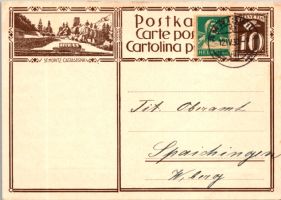 Postka
Carte pos
Cartolina p
HELVETIA
10
ST. MORITZ
Tit. Oberamt
Spaichingen
W.berg